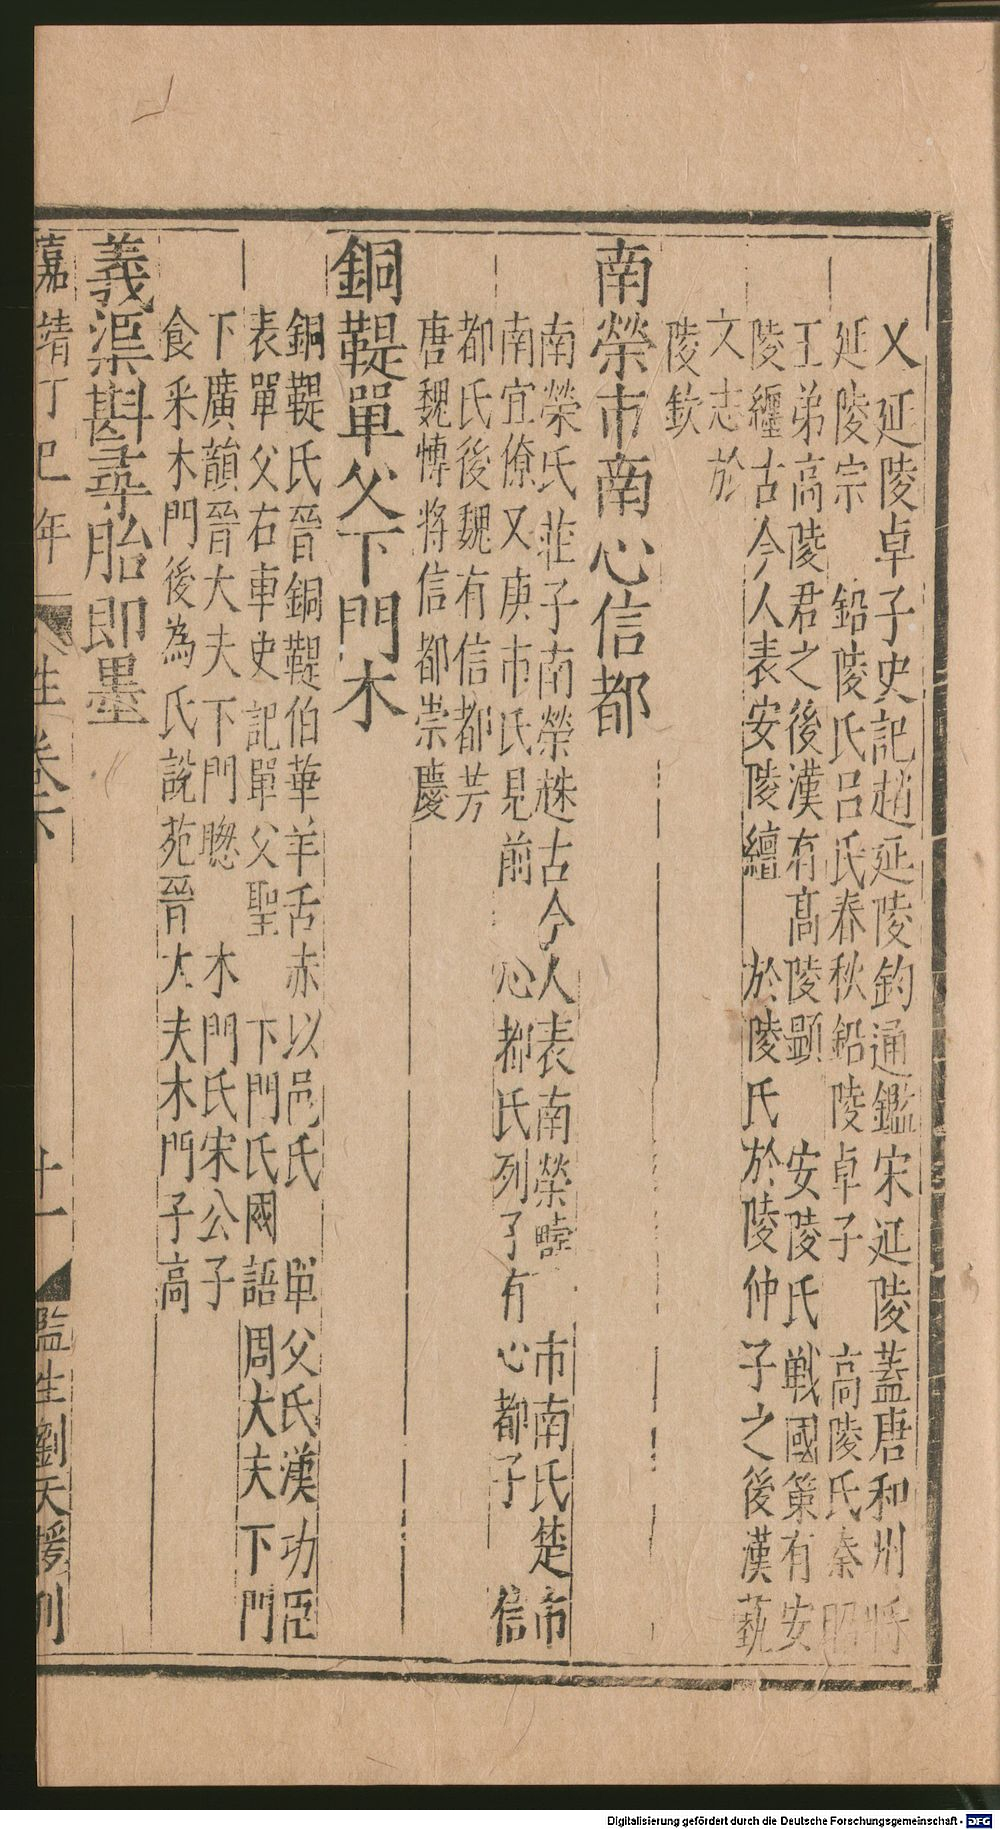 又延陵卓子史記趙延陵鈞通鑑宋延陵蓋唐和州將
延陵宗　鉛陵氏吕氏春秋鉛陵卓子　高陵氏秦昭
王弟高陵君之後漢有高陵顕　安陵氏戦國策有安
陵纏古今人表安陵繵　於陵氏於陵仲子之後漢藝
文志於
陵欽
南榮市南心信都
南榮氏莊子南榮趎古今人表南榮疇　市南氏楚市
南宜僚又庚市氏見前　心都氏列子有心都子　信
都氏後魏有信都芳
唐魏愽將信都崇慶
銅鞮單父下門木
銅鞮氏晉銅鞮伯華羊舌赤以邑氏　単父氏漢功臣
表單父右車史記單父聖　下門氏國語周大夫下門
下廣韻晉大夫下門聦　木門氏宋公子
食采木門後為氏說苑晉大夫木門子高
義渠斟尋胎即墨
嘉靖丁巳年　姓卷下　十一　監生劉天授刊
Digitalisierung gefördert durch die Deutsche Forschungsgemeinschaft - DFG